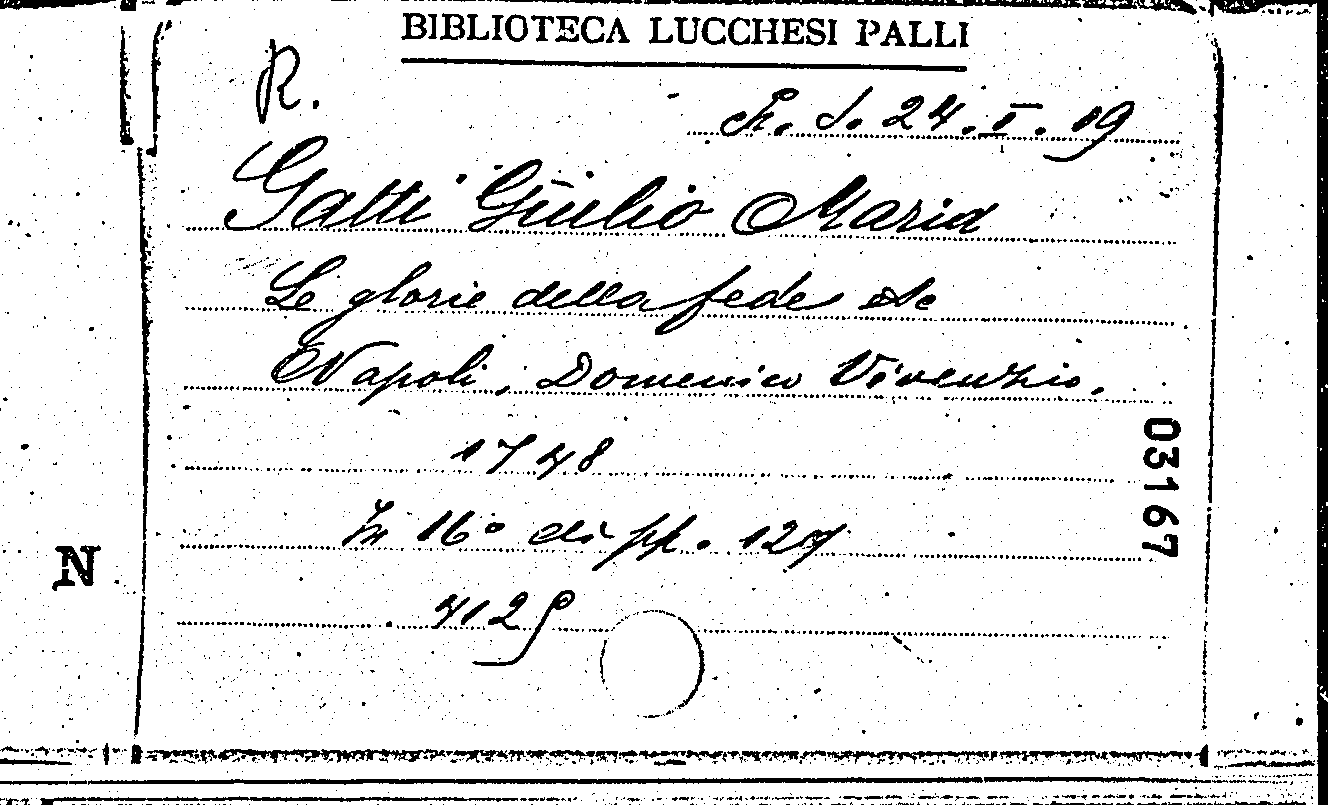 BIBLIOTECA LUCCHESI PALLI
R.
R. S. 24. I. 19
Gatti Giulio Maria
Le glorie della fede etc
Napoli, Domenico Vivenzio.
1748
In 16º di pp. 127
4125
03167
N